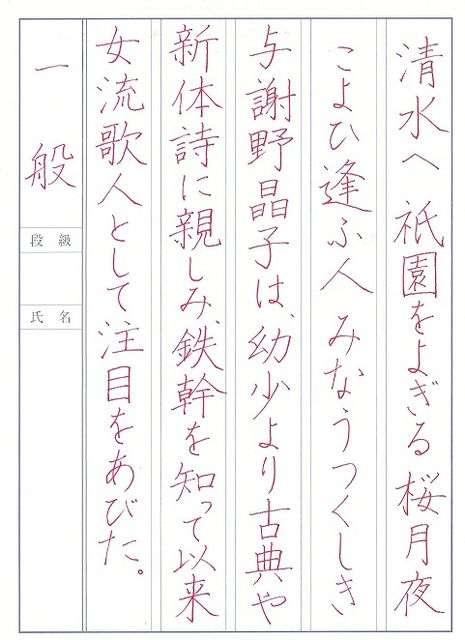 清水へ 祇園をよぎる 桜月夜
こよひ逢ふ人 みなうつくしき
与謝野晶子は、幼少より古典や
新体詩に親しみ、鉄幹を知って以来
女流歌人として注目をあびた。
一般
段級
氏名